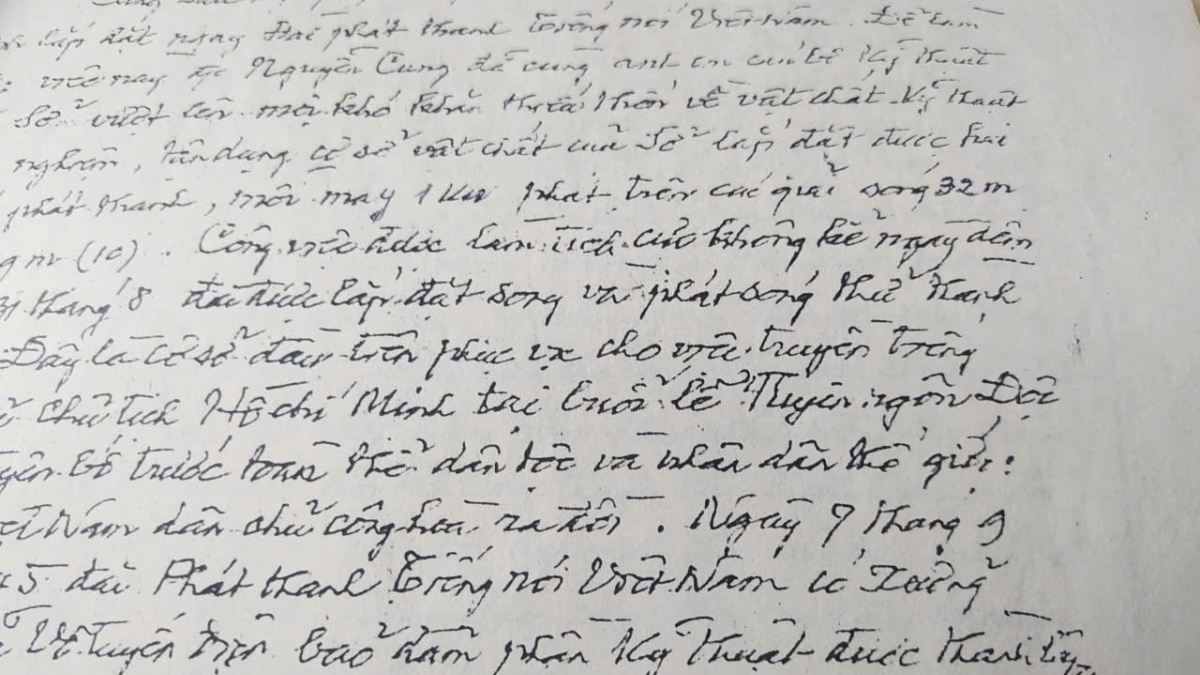 lắp đặt ngay Đài phát thanh tiếng nói Việt Nam. Để làm
việc này đ/c Nguyễn Cung đã cùng anh em cán bộ kỹ thuật
Sở vượt lên mọi khó khăn thiếu thốn về vật chất, kỹ thuật
nghèo nàn, tận dụng cơ sở vật chất của Sở lắp đặt được hai
phát thanh, mỗi máy 1 KW phát trên các giải sóng 32 m
m (10). Công việc được làm tích cực không kể ngày đêm
tháng 8 đã được lắp đặt song và phát sóng thử thành
Đây là cơ sở đầu tiên phục vụ cho việc truyền tiếng
Chủ tịch Hồ Chí Minh tại buổi lễ Tuyên ngôn Độc
bố trước toàn thể dân tộc và nhân dân thế giới:
Nam dân chủ cộng hoà ra đời. Ngày 7 tháng 9
5 đài Phát thanh tiếng nói Việt Nam có Xưởng
Vô tuyến điện bảo đảm phần kỹ thuật được thành lập